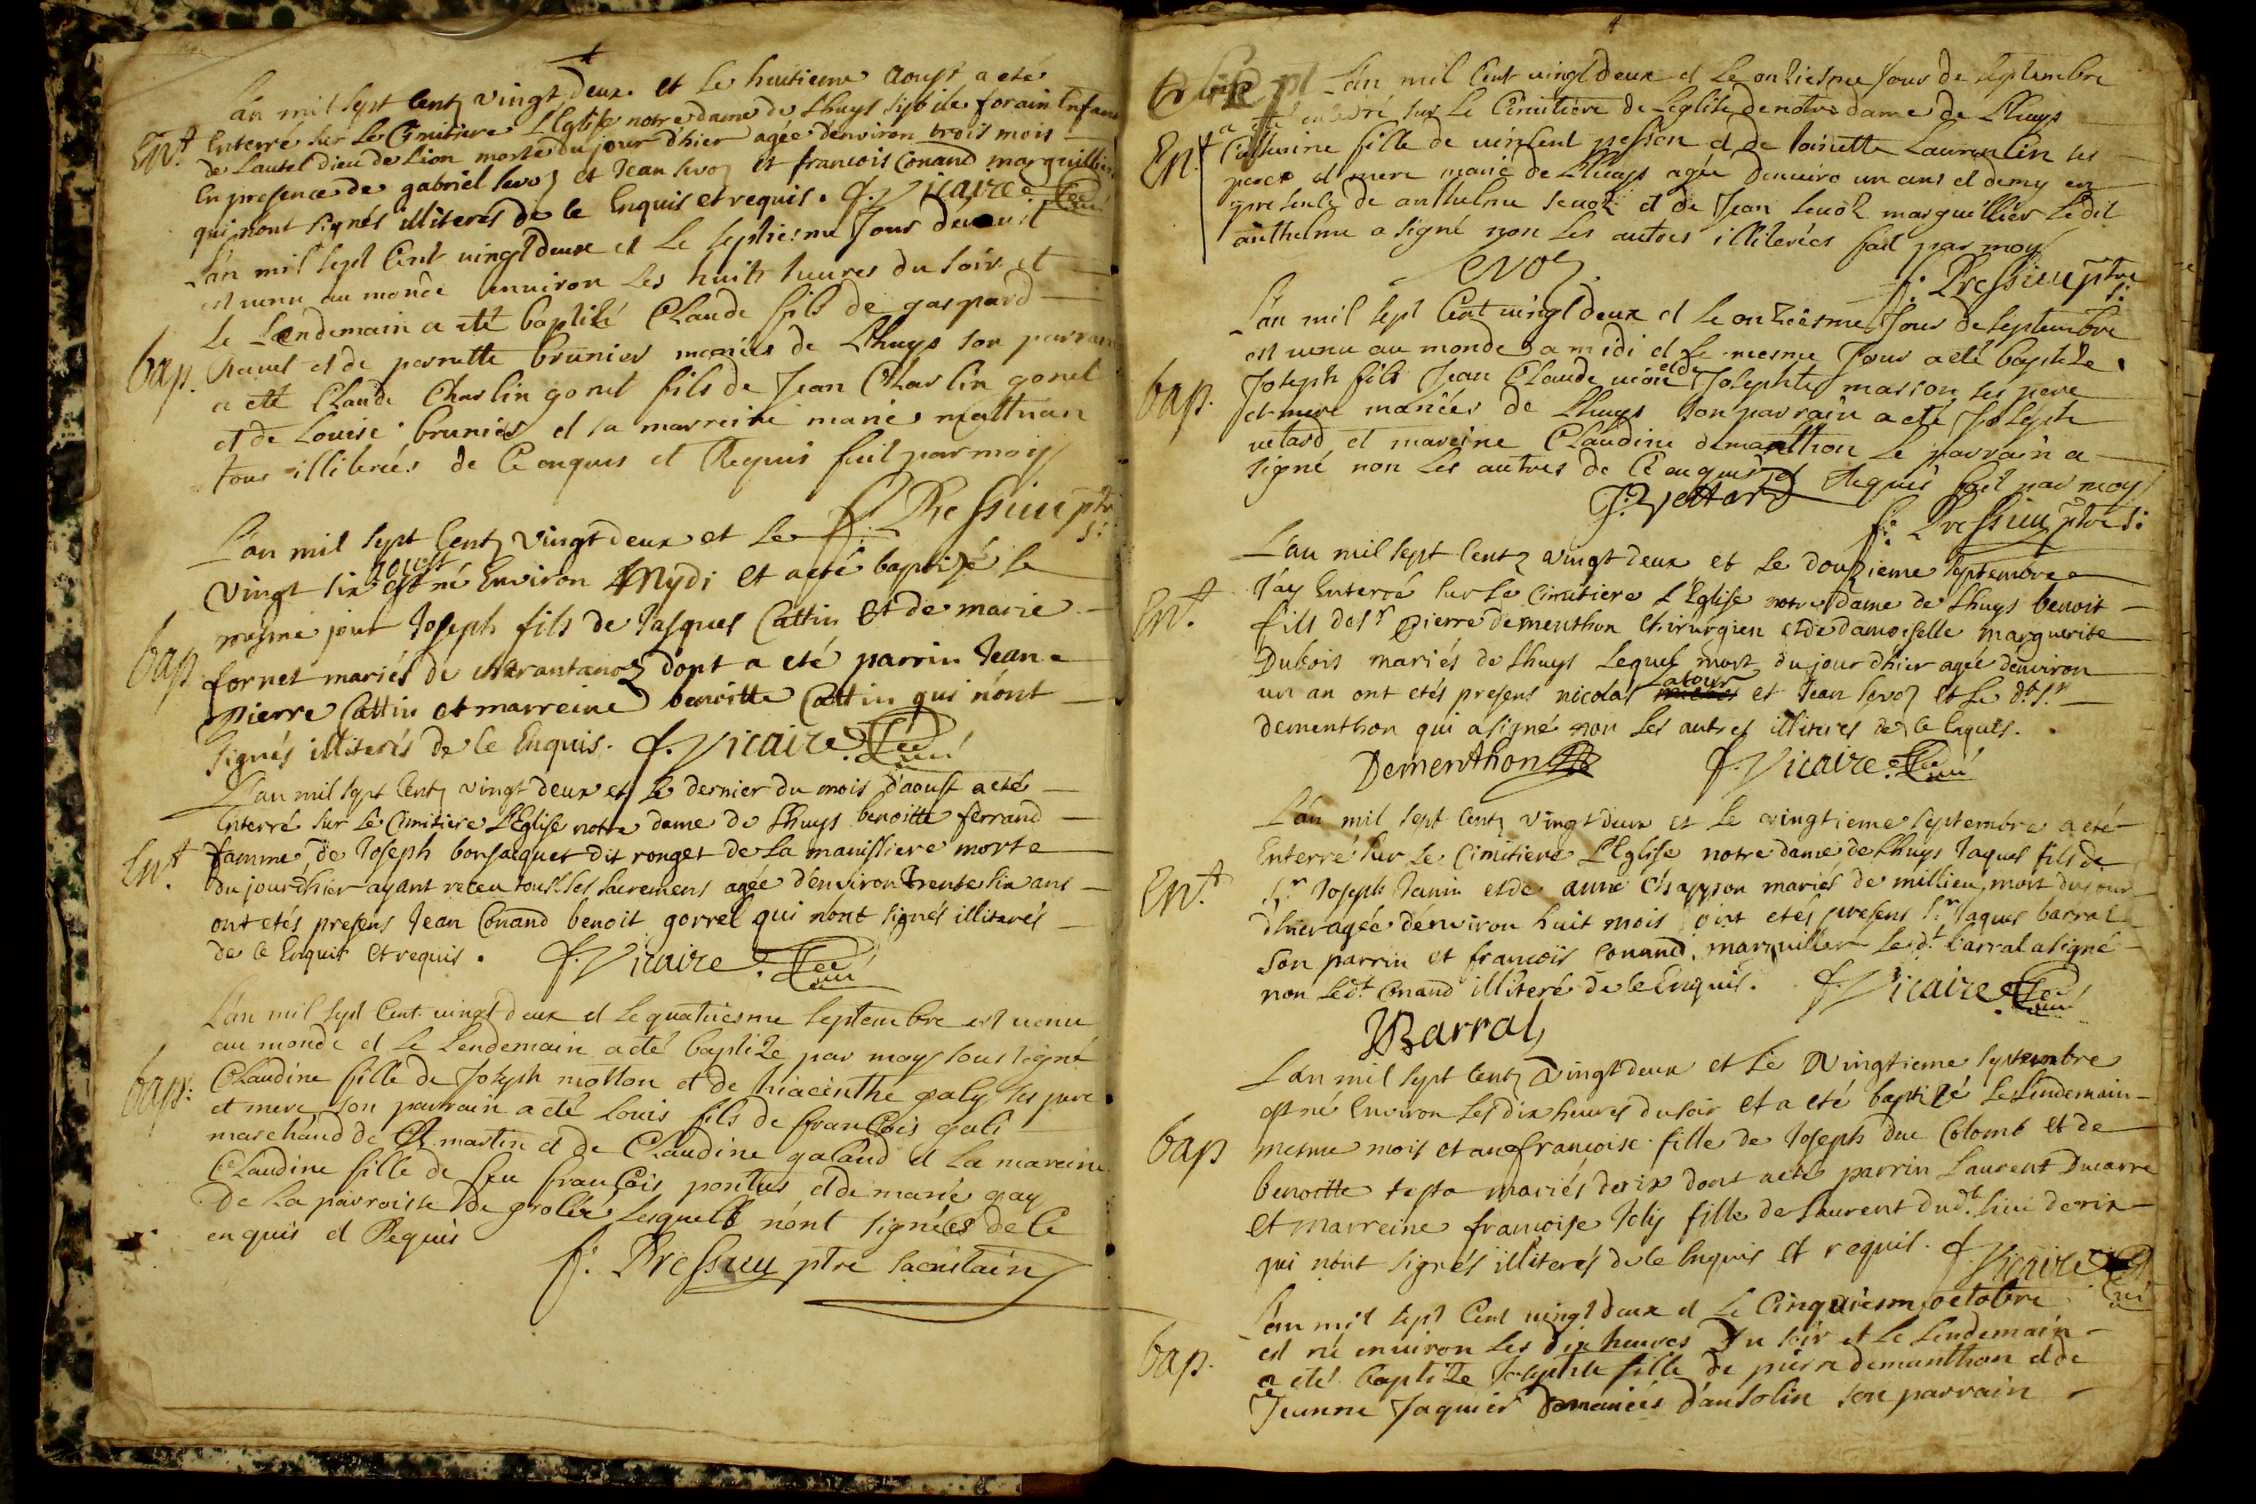 L'an mil sept Centz vingt deux et le huitieme Aoust a eté
Ent. Enterré sur le Cimitiere L'Eglise notre dame de Lhuys sibile forain Enfant
de Lautel dieu de Lion morte du jour d'hier agée denviron trois mois
En presence de gabriel sevoz et Jean sevoz et francois Conand marguillier
qui n'ont signés illiterés de ce Enquis et requis. f. Vicaire Curé
L'an mil sept Cent vingt deux et le septiesme Jour
est venu au monde environ les huits heures du soir et
le Lendemain a eté baptizé Claude fils de gaspard
bap. et de pernette brunier mariés de Lhuys son parrain
a eté Claude Charlin gonet fils de Jean Charlin gonet
et de Louise brunier et sa marreine marie
tous illiterés de Ce enquis et Requis fait par moy
f. Pressieu ptre S:
L'an mil sept Centz vingt deux et le
vingt six aoust est né Environ Mydi et a eté baptizé le
mesme jour Joseph fils de Jasques Cattin Et de marie
bap fornet mariés de dont a eté parrin Jean
pierre Cattin et marreine benoitte Cattin qui n'ont
signés illiterés de ce Enquis. f. Vicaire Curé
L'an mil sept Centz vingt deux et le dernier du mois d'aoust a eté
Enterré sur le Cimitiere L'Eglise notre dame de Lhuys benoitte ferrand
Ent. famme de Joseph bonjacquet dit ronget de la manissiere morte
du jour d'hier ayant receu tous les sacremens agée d'environ Trente six ans
ont etés presens Jean Conand benoit gorrel qui n'ont signés illiterés
de ce Enquis et requis. f. Vicaire Curé
L'an mil sept Cent vingt deux et le quatriesme septembre est venu
au monde et le Lendemain a eté baptizé par moy sous signé
bap: Claudine fille de Joseph motton et de hiacinthe galy ses pere
et mere son parrain a eté Louis fils de francois gali
marchand de St martin et de Claudine galand et la mareine
Claudine fille de feu francois pontus et de marie gay
de la parroisse de groleé lesquels n'ont signéés de Ce
enquis et Requis
f. Pressieu ptre sacristain
L'an mil Cent vingt deux et le onziesme Jour de septembre
a eté enterré sur le Cimitiere de Leglise de notre dame de Lhuys
Ent. Catherine fille de vincent pesson et de toinette Laurentin ses
peres et mere marié de Lhuys agée un ans et demy en
presence de anthelme sevoz et de Jean sevoz marguillier Ledit
anthelme a signé non les autres illiterées fait par moy
Sevoz f. Pressieu ptre S:
L'an mil sept Cent vingt deux et le onziesme Jour de septembre
est venu au monde a midi et le mesme Jour a eté baptizé
bap. Joseph fils Jean Claude et de Josephte masson ses pere
et mere mariées de Lhuys son parrain a eté Joseph
vetard et mareine Claudine demanthon le parrain a
signé non les autres de Ce enquis et Requis fait par moy
J. Vettard f. Pressieu ptre S:
L'an mil sept Centz vingt deux et le douzieme septembre
J'ay Enterré sur le Cimitiere L'Eglise notre dame de Lhuys benoit
Ent. fils de sr pierre dementhon Chirurgien et de damoiselle marguerite
Dubois mariés de Lhuys lequel mort du jour d'hier agée d'environ
un an ont etés presens nicolas Latour et Jean sevoz et le dt sr
dementhon qui a signé non les autres illiterés de ce Enquis.
Dementhon f. Vicaire Curé
L'an mil sept Centz vingt deux et le vingtieme septembre a eté
Enterré sur le Cimitiere L'Eglise notre dame de Lhuys Jaques fils de
Ent. sr Joseph Janin et de anne Chappon mariés de millieu, mort du jour
d'hier agée denviron huit mois ont etés presens sr Jaques barral
son parrin et francois Conand marguiller le dt barral a signé
non le dt Conand illiteré de ce Enquis. f. Vicaire Curé
JBarral
L'an mil sept Centz Vingt deux et le Vingtieme septembre
est né Environ les dix heures du soir et a eté baptizé le lendemain
bap mesme mois et an francoise fille de Joseph duc Colomb et de
benoitte testa mariés de rix dont a eté parrin Laurent Ducarre
et marreine francoise Joly fille de Laurent dudt Lieu de rix
qui n'ont signés illiterés de ce Enquis et requis. f. Vicaire Curé
L'an mil sept Cent vingt deux et le Cinquiesme octobre
est né environ les dix heures du soir et le lendemain
bap. a eté baptizé Josephte fille de pierre demanthon et de
Jeanne Jaquier mariées d'ansolin son parrain